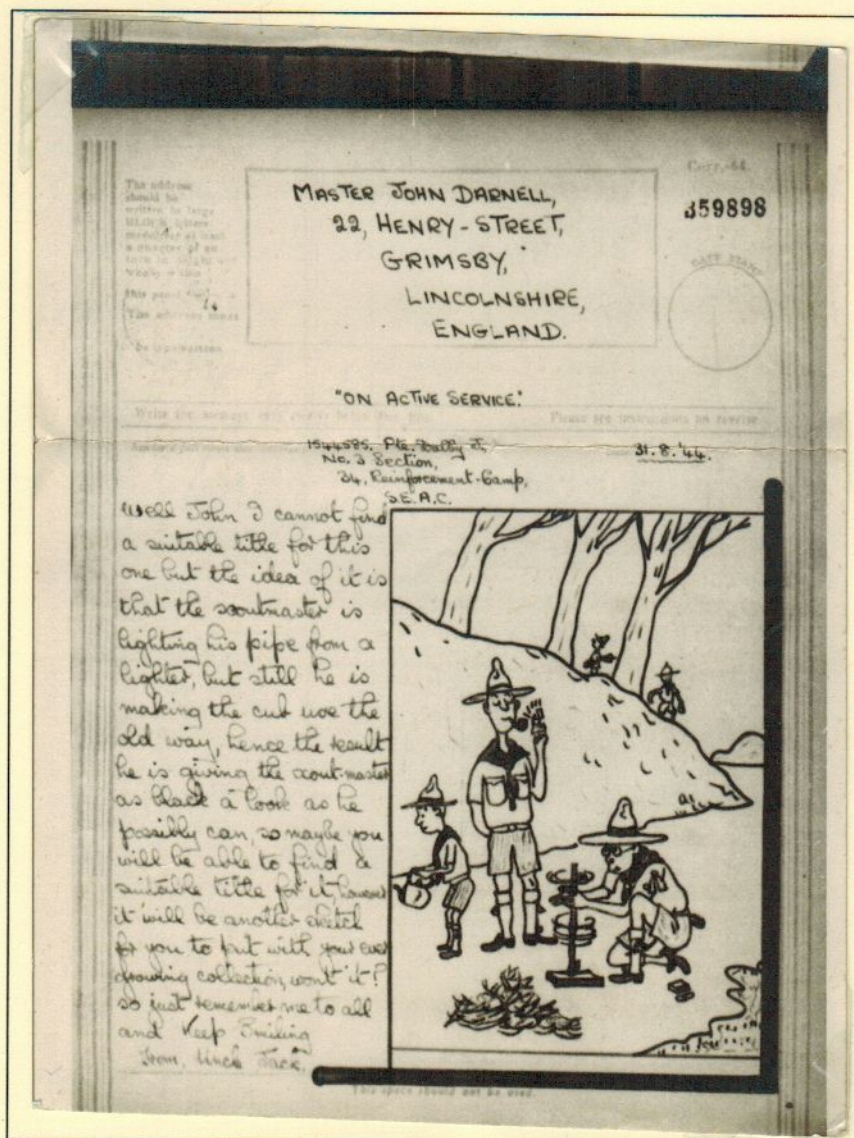 Corr.-44.
The address
should be
written in large
BLOCK
MASTER JOHN DARNELL,
22, HENRY-STREET,
GRIMSBY,
LINCOLNSHIRE,
ENGLAND.
359898
DATE STAMP
The address must
be typewritten
"ON ACTIVE SERVICE."
Write the message very below this line
Please see instructions on reverse
1544585, Pte. Dalby J,
No. 3 Section,
34, Reinforcement-Camp,
S.E.A.C.
31.8.'44.
Well John I cannot find
a suitable title for this
one but the idea of it is
that the scoutmaster is
lighting his pipe from a
lighter, but still he is
making the cub use the
old way, hence the result
he is giving the scout-master
as black a look as he
possibly can, so maybe you
will be able to find a
suitable title for it, however
it will be another sketch
for you to put with your ever
growing collection, wont it?
So just remember me to all
and Keep Smiling
From, Uncle Jack.
This space should not be used.